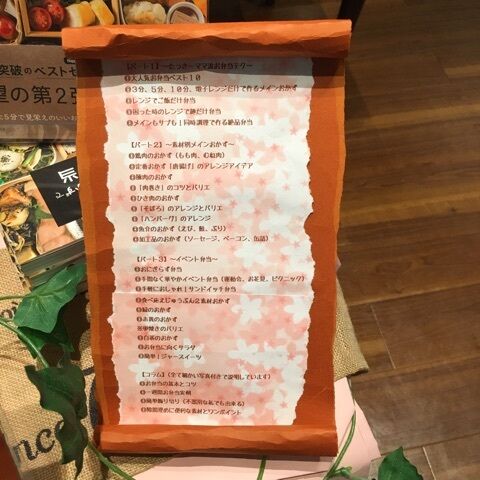 突破のベストセ
望の第2弾
に5分で見栄えのいいお
【パート1】〜たっきーママ流お弁当テク〜
❶大人気お弁当ベスト10
❷3分、5分、10分、電子レンジだけで作るメインおかず
❸レンジでご飯だけ弁当
❹困った時のレンジで麺だけ弁当
❺メインもサブも1同時調理で作る絶品弁当
【パート2】〜素材別メインおかず〜
❶鶏肉のおかず（もも肉、むね肉）
❷定番おかず「唐揚げ」のアレンジアイデア
❸豚肉のおかず
❹「肉巻き」のコツとバリエ
❺ひき肉のおかず
❻「そぼろ」のアレンジとバリエ
❼「ハンバーグ」のアレンジ
❽魚介のおかず（えび、鮭、ぶり）
❾加工品のおかず（ソーセージ、ベーコン、缶詰）
【パート3】〜イベント弁当〜
❶おにぎらず弁当
❷手間なく華やかイベント弁当（運動会、お花見、ピクニック）
❸手軽におしゃれ！サンドイッチ弁当
❹食べ応えじゅうぶん2素材おかず
❺緑のおかず
❻赤黄のおかず
卵焼きのバリエ
❼白茶のおかず
❽お弁当に向くサラダ
❾簡単！ジャースイーツ
【コラム】（全て細かい写真付きで説明しています）
❶お弁当の基本とコツ
❷一週間お弁当実例
❸簡単飾り切り（不器用な私でも出来る）
❹隙間埋めに便利な素材とワンポイント